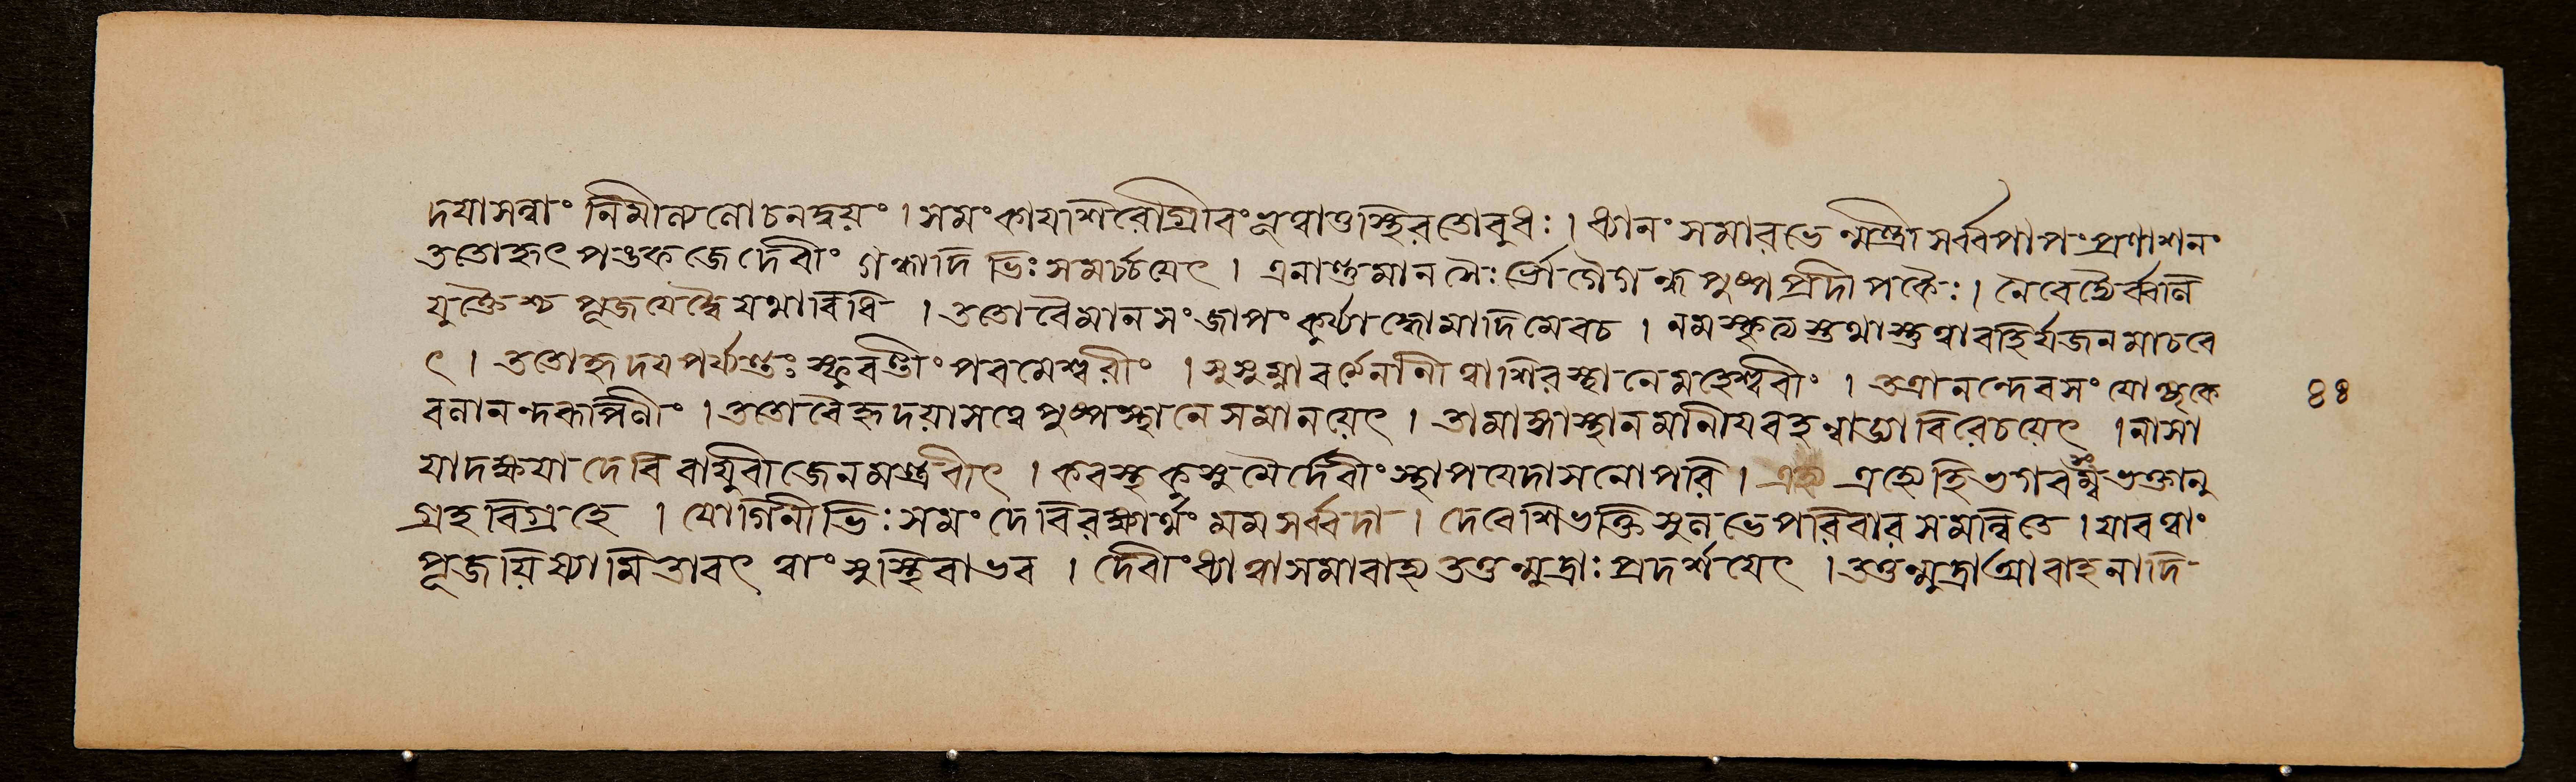 দয়াসন্বাং নিমীল্য লোচনদ্বয়ং । সমংকায়শিরোগ্রীবংধৃত্বাতুস্থিরতোবুধঃ । ধ্যানং সমারভেন্মন্ত্রী সর্ব্বপাপংপ্রণাশনং
ততোহৃৎপঙ্কজে দেবীং গন্ধাদিভিঃ সমর্চ্চয়েৎ । এলাশুমানসৈঃর্ভোগৈর্গন্ধপুষ্পপ্রদীপকৈঃ । নৈবেদ্যৈর্ব্বলি
যুক্তৈশ্চ পূজয়েদ্বৈ যথাবিধি । ততোবৈমানসংজাপং কুর্য্যাদ্ধোমাদিমেবচ । নমস্কৃত্যস্তুথাস্তুত্বাবহির্যজনমাচরে
ৎ । ততোহৃদয়পর্য্যন্তং স্ফুরন্তীং পরমেশ্বরীং । সুসুম্নাবর্ত্মেনানীত্বাশিরস্থানেমহেশ্বরীং । তত্রানন্দেবসংযোজ্যকে
বলানন্দরূপিণীং । ততোবৈহৃদয়াসত্বে পুষ্পস্থানে সমানয়েৎ । তামাত্মাস্থানমানীয়বহন্নাড্যাবিরেচয়েৎ । নাসা
য়াদক্ষয়া দেবি বায়ুবীজেনমন্ত্রবীৎ । করস্থকুসুমৈর্দেবীং স্থাপয়েদাসনোপরি । এহ্যেহিভগবত্যম্বভক্তানু
গ্রহবিগ্রহে । যোগিনীভিঃ সমং দেবিরক্ষার্থং মমসর্ব্বদা । দেবেশিভক্তিসুলভেপরিবারসমন্বিতে । যাবত্বাং
পূজয়িষ্যামিতাবৎ ত্বাং সুস্থিরাভব । দেবীংধ্যাত্বাসমাবাহ্য তত্তন্মুদ্রাঃ প্রদর্শয়েৎ । তত্তন্মুদ্রাআবাহনাদি
88